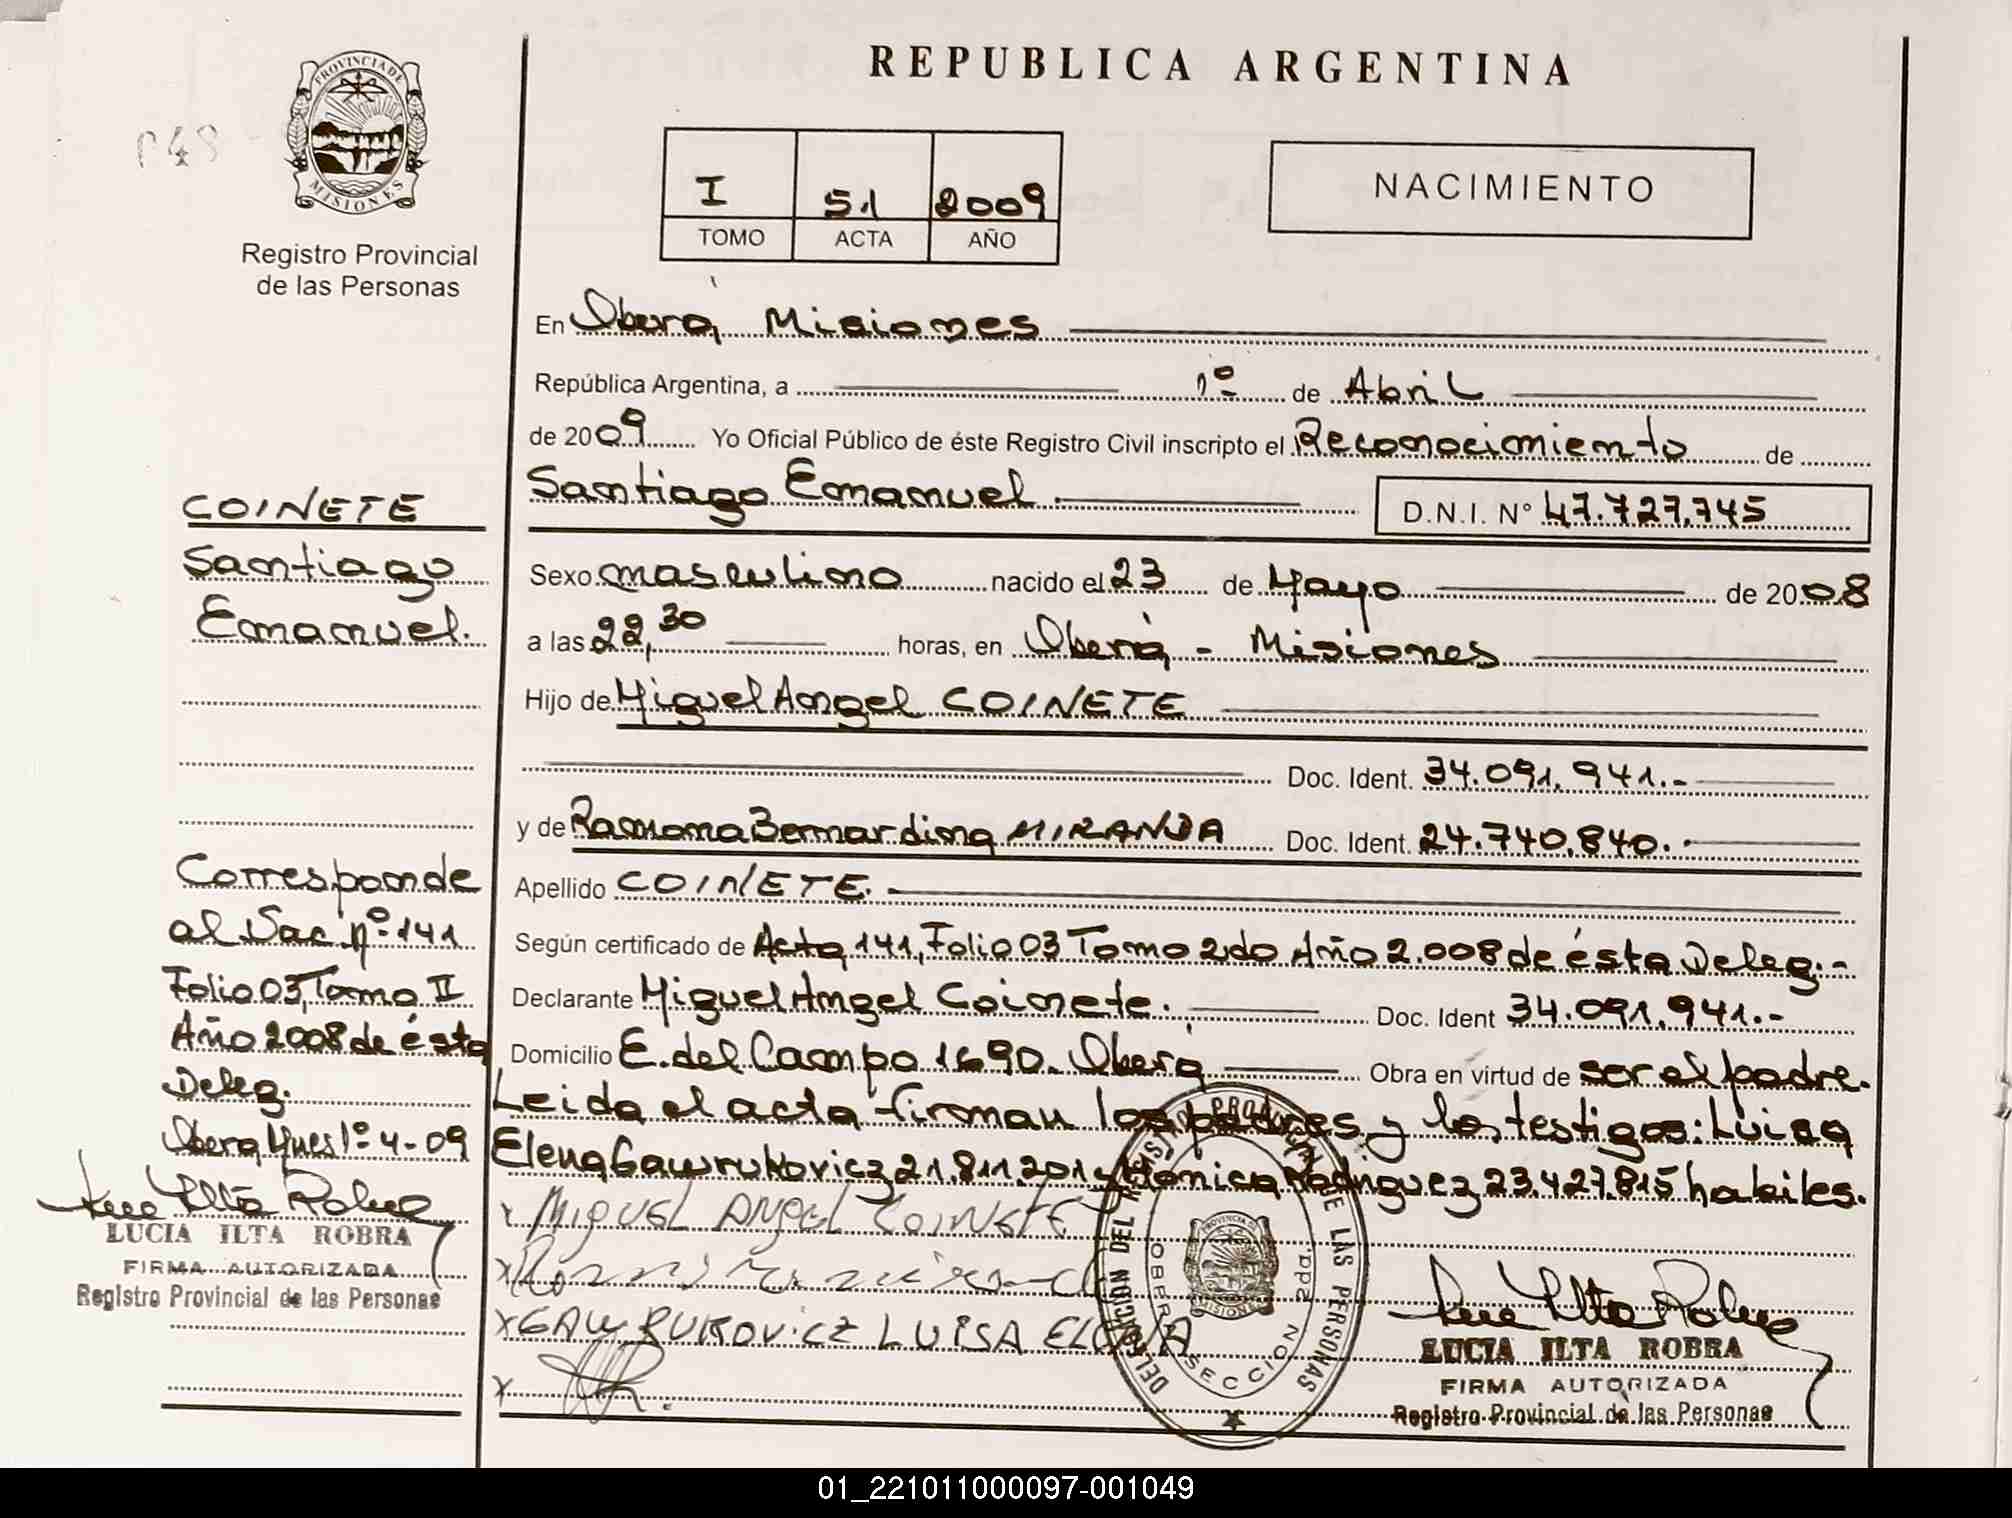 REPUBLICA ARGENTINA
PROVINCIA DE
MISIONES
048
Registro Provincial
de las Personas
I 51 2009
TOMO ACTA AÑO
NACIMIENTO
En Oberá, Misiones
República Argentina, a 1º de Abril
de 2009 Yo Oficial Público de éste Registro Civil inscripto el Reconocimiento de
Santiago Emanuel. D.N.I. N° 47.727.745
Sexo masculino nacido el 23 de Mayo de 2008
a las 22,30 horas, en Oberá - Misiones
Hijo de Miguel Angel COINETE
Doc. Ident. 34.091.941.-
y de Ramona Bernardina MIRANDA Doc. Ident. 24.740.840.-
Apellido COINETE.
Según certificado de Acta 141, Folio 03 Tomo 2do Año 2.008 de ésta Deleg.-
Declarante Miguel Angel Coinete. Doc. Ident 34.091.941.-
Domicilio E. del Campo 1690. Oberá Obra en virtud de ser el padre.
Leida el acta firman los padres y los testigos: Luisa
Elena Gawrukovicz 21.811.201 y Monica Rodriguez 23.427.815 habiles.
x MIGUEL ANGEL COINETE
x
x GAWRUKOVICZ LUISA ELENA
x
COINETE
Santiago
Emanuel.
Corresponde
al Nac. nº 141
Folio 03, Tomo II
Año 2008 de ésta
Deleg.
Oberá Mnes 1º-4-09
LUCIA ILTA ROBRA
FIRMA AUTORIZADA
Registro Provincial de las Personas
DELEGACION DEL REGISTRO PROVINCIAL DE LAS PERSONAS
OBERA SECCION 2da.
PROVINCIA DE
MISIONES
LUCIA ILTA ROBRA
FIRMA AUTORIZADA
Registro Provincial de las Personas
01_221011000097-001049